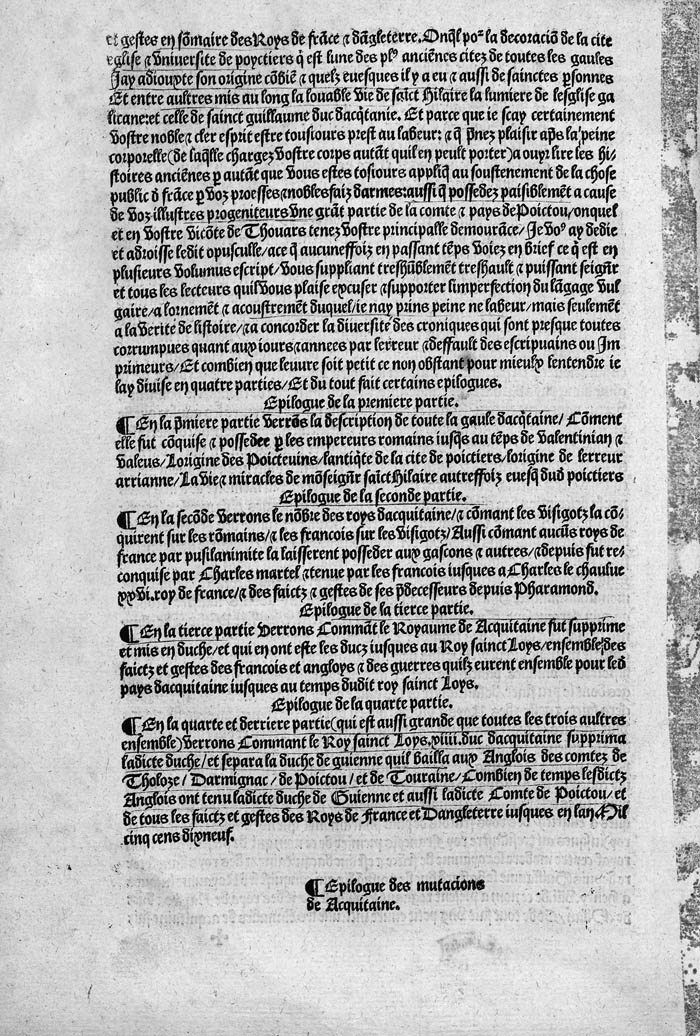 et gestes en sõmaire des Roys de frãce ⁊ dãgleterre. Onq̃l poʳ la decoraciõ de la cite
eglise ⁊ vniversite de poyctiers q̃ est lune des plˀ anciẽnes citez de toutes les gaules
Jay adiouxte son origine cõbiẽ ⁊ quelz euesques il y a eu ⁊ aussi de sainctes ꝑsonnes
Et entre aultres mis au long la louable vie de saĩct Hilaire la lumiere de lesglise ga
licane:et celle de sainct guillaume duc dacq̃tanie. Et parce que ie scay certainement
vostre noble ⁊ cler esprit estre tousiours prest au labeur: ⁊ q̃ p̃nez plaisir ap̃s la peine
corporelle(de laq̃lle chargez vostre corps autãt quil en peult porter)a ouyr lire les hi-
stoires anciẽnes ꝑ autãt que vous estes tosiours appliq̃ au soustenement de la chose
public d̃ frãce ꝑ voz proesses ⁊ nobles faiz darmes:aussi q̃ possedez paisiblemẽt a cause
de voz illustres progeniteurs vne grãt partie de la comte ⁊ pays de Poictou/onquel
et en vostre vicõte de Thouars tenez vostre principalle demourãce/Je voˀ ay dedie
et adroisse ledit opusculle/ace q̃ aucuneffoiz en passant tẽps voiez en brief ce q̃ est en
plusieurs volumus escript/vous suppliant treshũblemẽt treshault ⁊ puissant seigñr
et tous les lecteurs quil vous plaise excuser ⁊ supporter limperfection du lãgage vul
gaire/a lornemẽt ⁊ acoustrement duquel/ie nay prins peine ne labeur/mais seulemẽt
a la verite de listoire/⁊ a concorder la diversite des croniques qui sont presque toutes
corrumpues quant aux iours ⁊ annees par lerreur ⁊ deffault des escripuains ou Im
primeurs/Et combien que leuure soit petit ce non obstant pour mieulx lentendre ie
lay divise en quatre parties/Et du tout fait certains epilogues.
Epilogue de la premiere partie.
¶ En la p̃miere partie verrõs la description de toute la gaule dacq̃taine/ Cõment
elle fut cõquise ⁊ possedee ꝑ les empereurs romains iusq̃s au tẽps de valentinian ⁊
valeus/Lorigine des Poicteuins/lantiq̃te de la cite de poictiers/lorigine de lerreur
arrianne/La vie ⁊ miracles de mõseigñr saĩct Hilaire autreffoiz euesq̃ dud̃ poictiers
Epilogue de la seconde partie.
¶ En la secõde verrons le nõbre des roys dacquitaine/⁊ cõmant les visigotz la cõ-
quirent sur les rõmains/⁊ les francois sur les visigotz/Aussi cõmant aucũs roys de
france par pusilanimite la laisserent posseder aux gascons ⁊ autres/⁊ depuis fut re-
conquise par Charles martel ⁊ tenue par les francois iusques a Charles le chaulue
xxvi.roy de france/⁊ des faictz ⁊ gestes de ses p̃decesseurs depuis Pharamond.
Epilogue de la tierce partie.
¶ En la tierce partie verrons Commãt le Royaume de Acquitaine fut supprime
et mis en duche/et qui en ont este les ducz iusques au Roy sainct Loys/ensemble des
faictz et gestes des francois et angloys ⁊ des guerres quilz eurent ensemble pour led̃
pays dacquitaine iusques au temps dudit roy sainct Loys.
Epilogue de la quarte partie.
¶ En la quarte et derriere partie(qui est aussi grande que toutes les trois aultres
ensemble)verrons Commant le Roy sainct Loys.xliiii.duc dacquitaine supprima
ladicte duche/et separa la duche de guienne quil bailla aux Anglois des comtez de
Tholoze/ Darmignac/ de Poictou/ et de Touraine/ Combien de temps lesdictz
Anglois ont tenu ladicte duche de Guienne et aussi ladicte Comte de Poictou/ et
de tous les faictz et gestes des Roys de France et Dangleterre iusques en lan Mil
cinq cens dixneuf.
¶ Epilogue des mutacions
de Acquitaine.